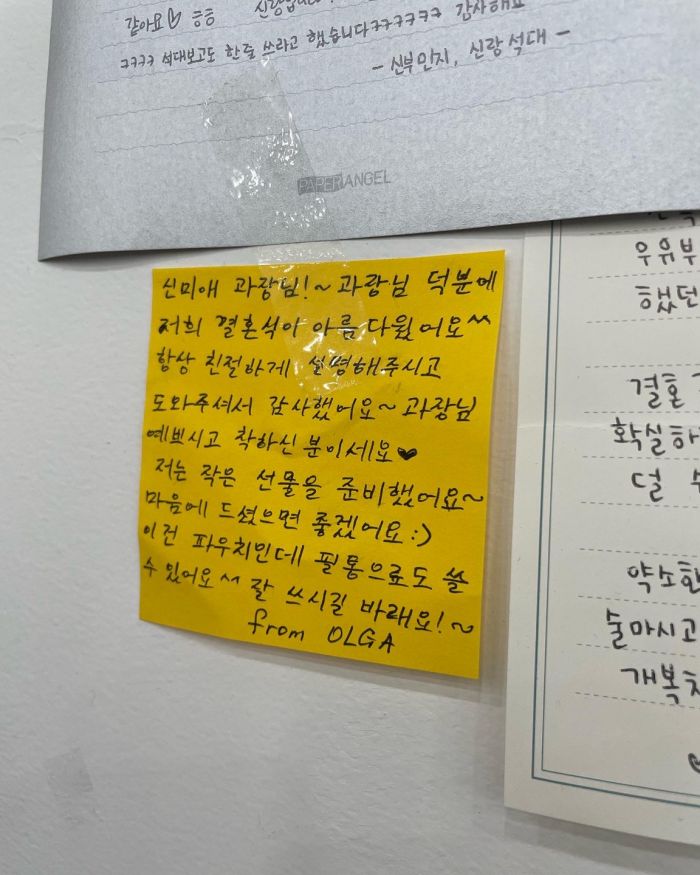 같아요 ㅎㅎ 신랑입니다
ㅋㅋㅋㅋ 석대보고도 한줄 쓰라고 했습니다ㅋㅋㅋㅋㅋㅋ 감사해요
- 신부 인지, 신랑 석대 -
PAPER ANGEL
신미애 과장님!~ 과장님 덕분에
저희 결혼식이 아름다웠어요^^
항상 친절하게 설명해주시고
도와주셔서 감사했어요~ 과장님
예쁘시고 착하신 분이세요♥
저는 작은 선물을 준비했어요~
마음에 드셨으면 좋겠어요:)
이건 파우치인데 필통으로도 쓸
수 있어요^^ 잘 쓰시길 바래요!~
from OLGA
우유부
했던
결혼
확실하
덜
약소한
술마시고
개복치